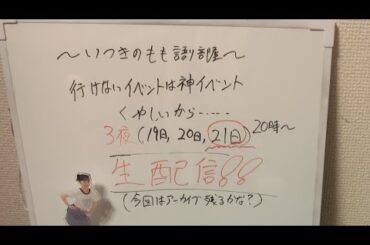 ～いつきのもも語り部屋～
行けないイベントは神イベント
くやしいから‥‥‥
3夜(19日,20日,21日)20時～
生配信!!
(今回はアーカイブ残るかな?)